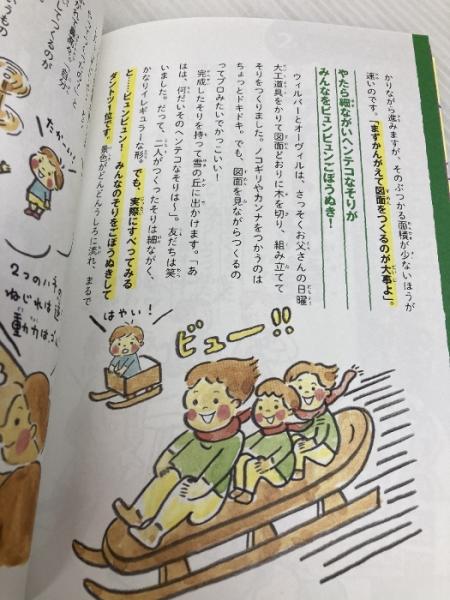 かりながら進みますが、そのぶつかる面積が少ないほうが
速いのです。「まずかんがえて図面をつくるのが大事よ」。
やたら細ながいヘンテコなそりが
みんなをビュンビュンごぼうぬき！
ウィルバーとオーヴィルは、さっそくお父さんの日曜
大工道具をかりて図面どおりに木を切り、組み立てて
そりをつくりました。ノコギリやカンナをつかうのは
ちょっとドキドキ。でも、図面を見ながらつくるの
ってプロみたいでかっこいい！
完成したそりを持って雪の丘に出かけます。「あ
はは、何だいそのヘンテコなそりは〜」。友だちは笑
いました。だって、二人がつくったそりは細ながく、
かなりイレギュラーな形。でも、実際にすべってみる
と……ビュンビュン！ みんなのそりをごぼうぬきして
ダントツ一位です。景色がどんどんうしろに流れ、まるで
はやい！
ビュー!!
たかーい!
2つのハネの
ねじれは
動力はゴム